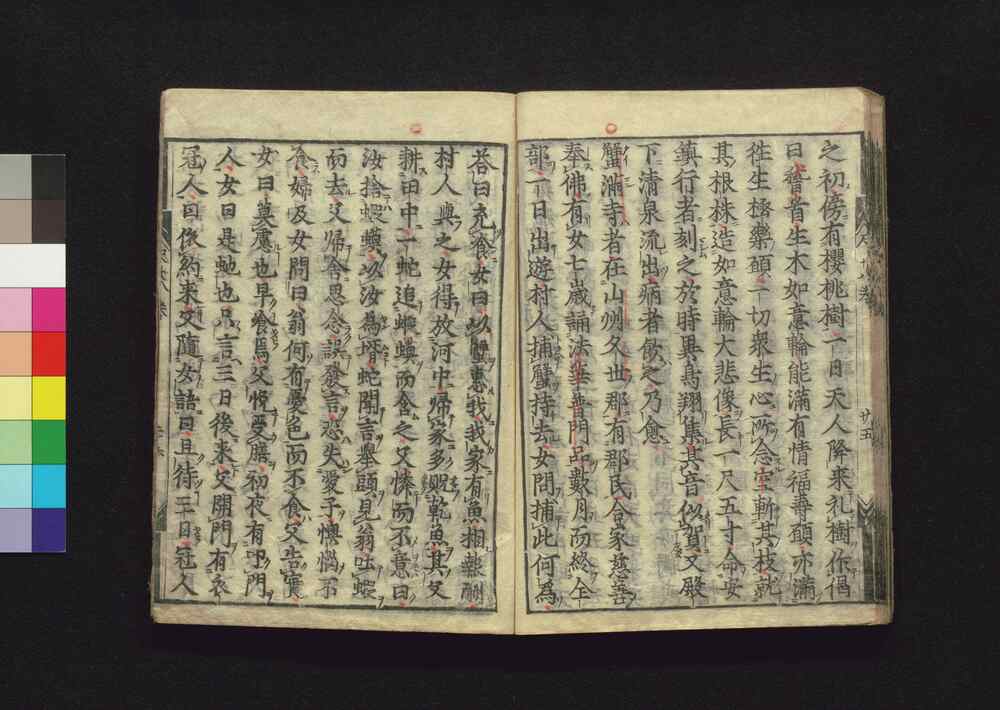 之初傍有櫻桃樹一日天人降来礼樹作偈
曰稽首生木如意輪能滿有情福壽願亦滿
徃生極樂願一切衆生心所念空斬其枝就
其根株造如意輪大悲像長一尺五寸命安
鎮行者刻之於時異鳥翔集其音似賀又殿
下清泉流出病者飲之乃愈
蟹滿寺者在山州久世郡有郡民合家慈善
奉佛有女七歳誦法華普門品數月而終全
部一日出遊村人捕蟹持去女問捕此何爲
荅曰充飡女曰以蟹惠我我家有魚相報酬
村人與之女得放河中歸家多貺乾魚其父
耕田中一蛇追蝦蟇而含之父憐而不意曰
汝捨蝦蟇以汝爲壻蛇聞言舉頭見翁吐蝦
而去父歸舍思念誤發言恐失愛子懊惱不
食婦及女問曰翁何有憂色而不食父告實
女曰莫慮也早飡焉父悅受膳初夜有叩門
人女曰是虵也只言三日後来父開門有衣
冠人曰依約来父隨女語曰且待三日冠人
廿五